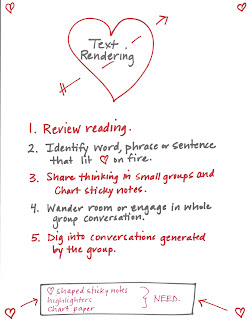 Text
Rendering
1. Review reading.
2. Identify word, phrase or sentence
that lit ♡ on fire.
3. Share thinking in small groups and
Chart sticky notes.
4. Wander room or engage in whole
group conversation.
5. Dig into conversations generated
by the group.
♡ shaped sticky notes
highlighters
chart paper
} NEED.